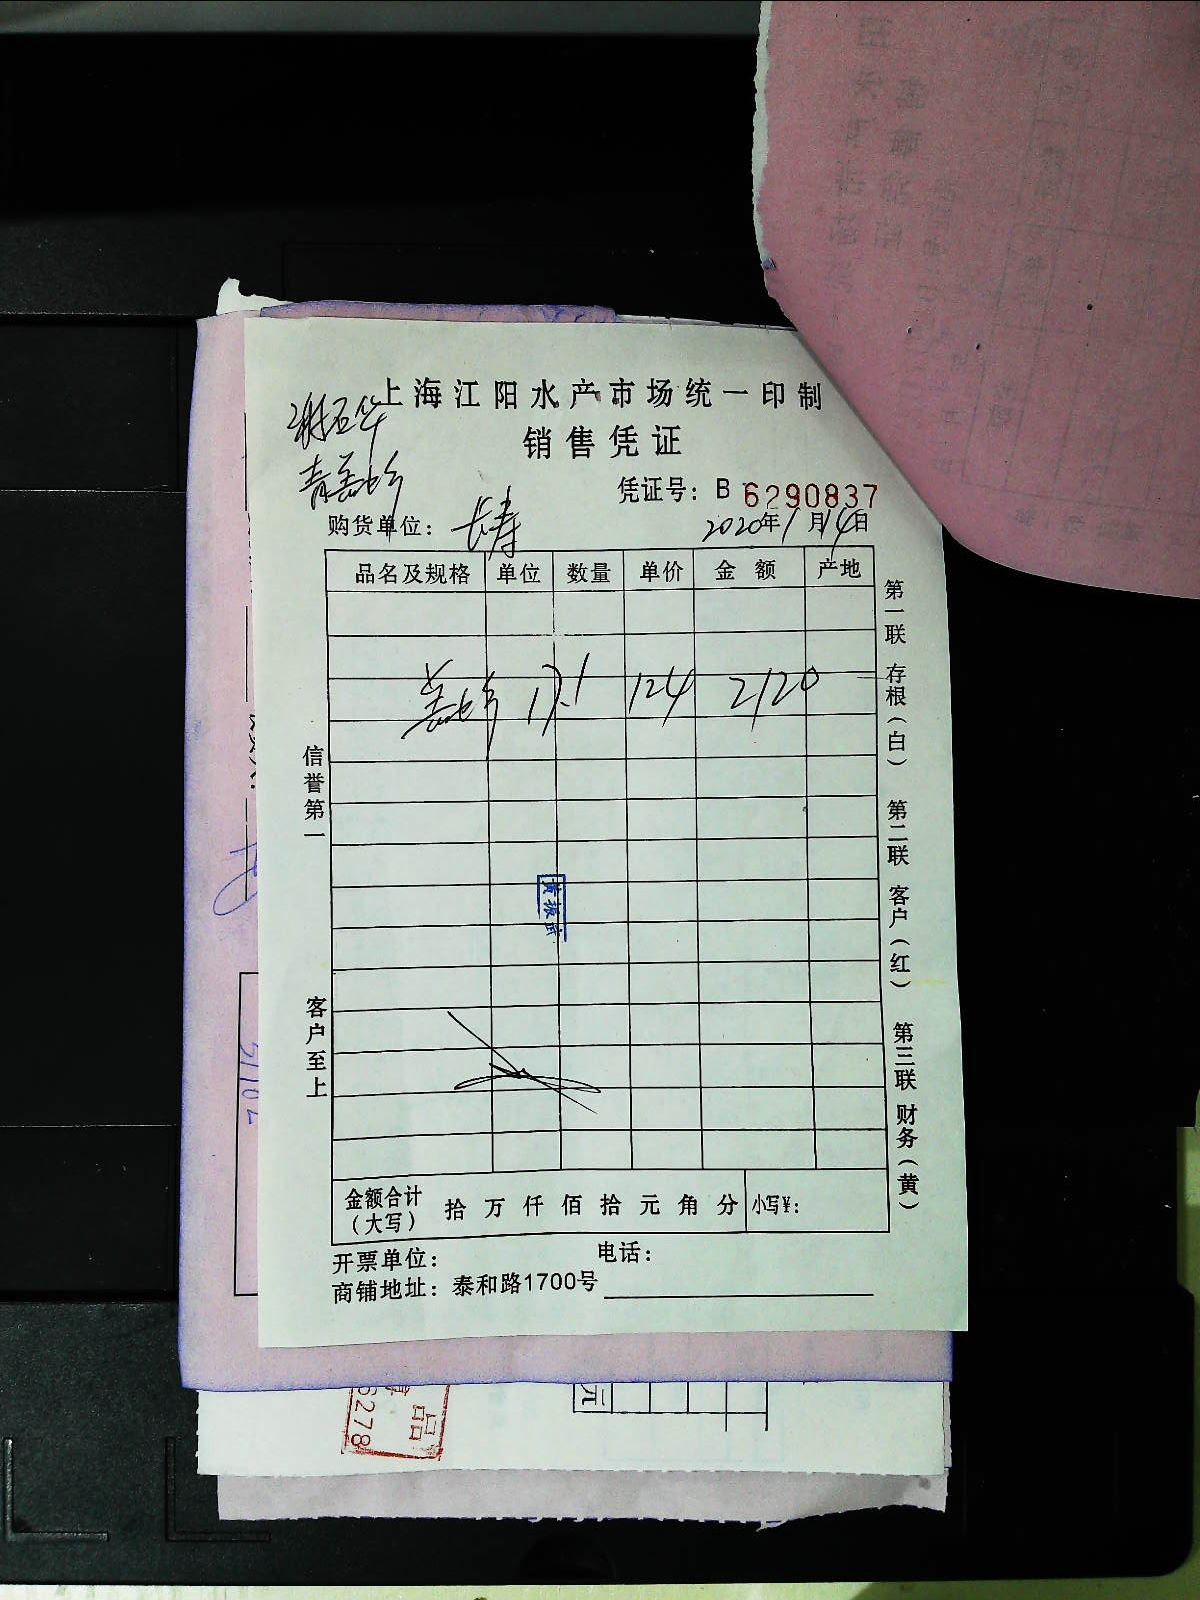 上海江阳水产市场统一印制
销售凭证
凭证号：B 6290837
购货单位：长寿 2020年1月14日
品名及规格 单位 数量 单价 金额 产地
17.1 124 2120
黄振武
信誉第一
客户至上
第一联 存根（白）
第二联 客户（红）
第三联 财务（黄）
金额合计（大写） 拾 万 仟 佰 拾 元 角 分 小写￥：
开票单位： 电话：
商铺地址：泰和路1700号
元
品
6278